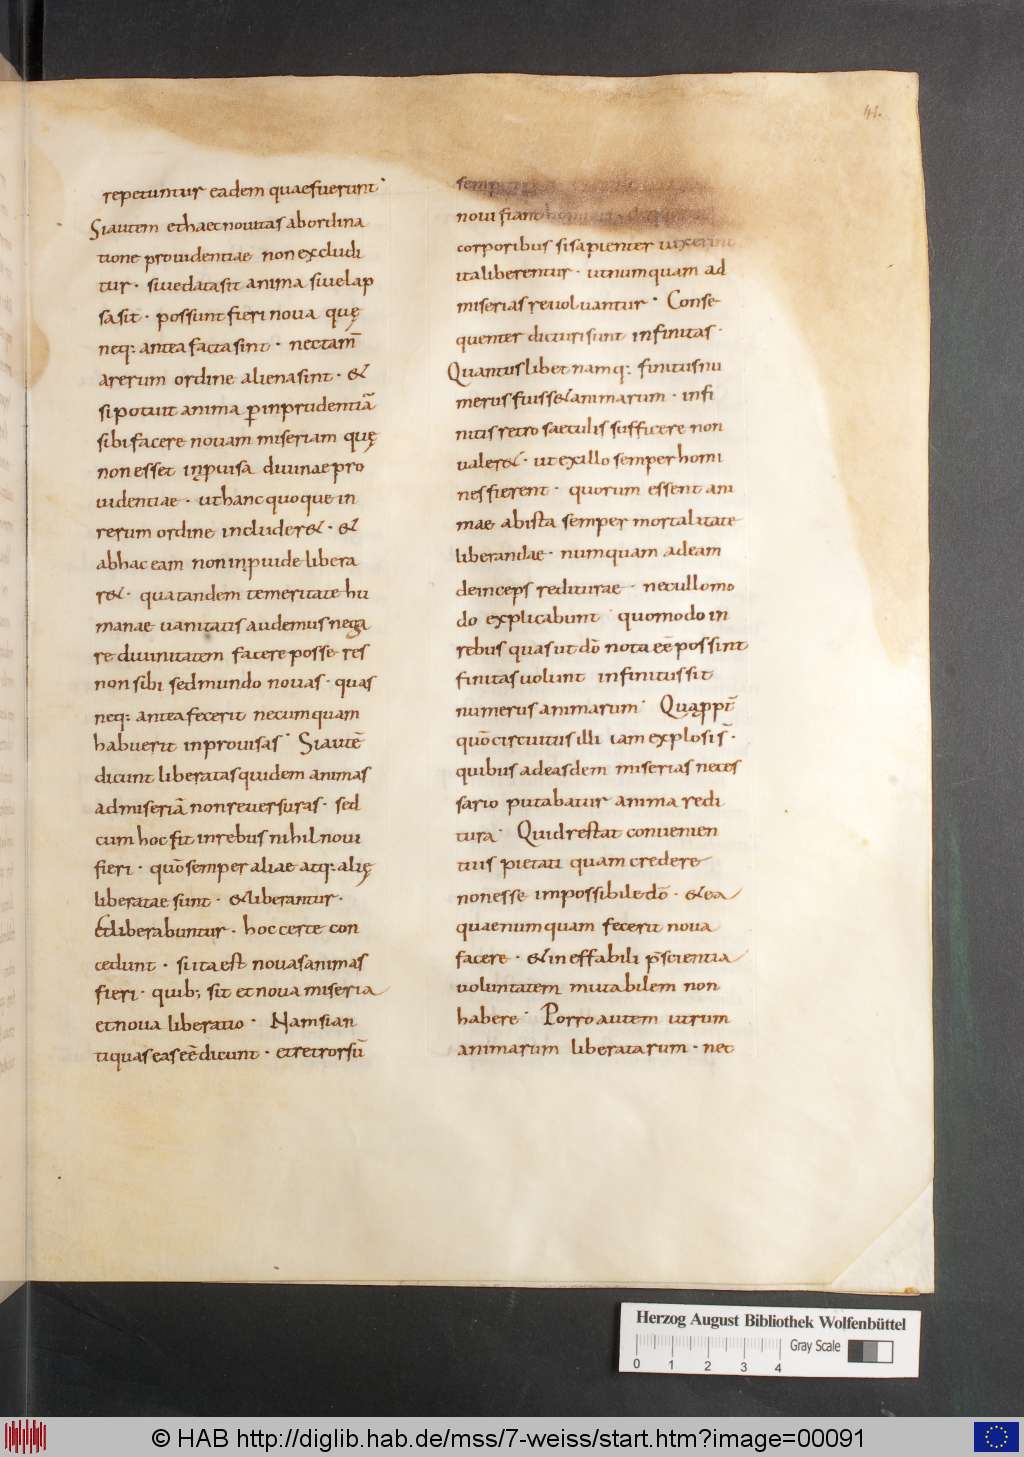 41.
repetuntur eadem quae fuerunt·
Si autem et haec nouitas ab ordina
tione prouidentiae non excludi
tur· siue data sit anima siue lap
sa sit· possunt fieri noua quę
neq: antea facta sint· nec tam̄
a rerum ordine aliena sint· &
si potuit anima ꝑ inprudentiā
sibi facere nouam miseriam quę
non esset inꝓuisa diuinae pro
uidentiae· ut hanc quoque in
rerum ordine includer&· &
ab hac eam non inꝓuide libera
r&· qua tandem temeritate hu
manae uanitatis audemus nega
re diuinitatem facere posse res
non sibi sed mundo nouas· quas
neq: antea fecerit nec umquam
habuerit inprouisas· Si autē
dicunt liberatas quidem animas
ad miseriā non reuersuras· sed
cum hoc fit in rebus nihil noui
fieri· quō semper aliae atq: alię
liberatae sunt· & liberantur·
Et liberabuntur· hoc certe con
cedunt· si ita est nouas animas
fieri· quib; sit et noua miseria
et noua liberatio· Nam si an
tiquas eas eē dicunt· et retrorsū
semp
noui fiant
corporibus si sapienter uixerint
ita liberentur· ut numquam ad
miserias reuoluantur· Conse
quenter dicturi sunt infinitas·
Quantuslibet namq: finitus nu
merus fuiss& animarum· infi
nitis retro saeculis sufficere non
ualer&· ut ex illo semper homi
nes fierent· quorum essent ani
mae ab ista semper mortalitate
liberandae· numquam ad eam
deinceps rediturae· nec ullo mo
do explicabunt· quomodo in
rebus quas ut dō nota eē possint
finitas uolunt infinitus sit
numerus animarum· Quaꝓpt̄
quō circuitus illi iam explosi s̄·
quibus ad easdem miserias neces
sario putabatur anima redi
tura· Quid restat conuenien
tius pietati quam credere
non esse impossibile dō· & ea
quae numquam fecerit noua
facere· & ineffabili p̄scientia
uoluntatem mutabilem non
habere· Porro autem utrum
animarum liberatarum· nec
Herzog August Bibliothek Wolfenbüttel
0 1 2 3 4 Gray Scale
© HAB http://diglib.hab.de/mss/7-weiss/start.htm?image=00091